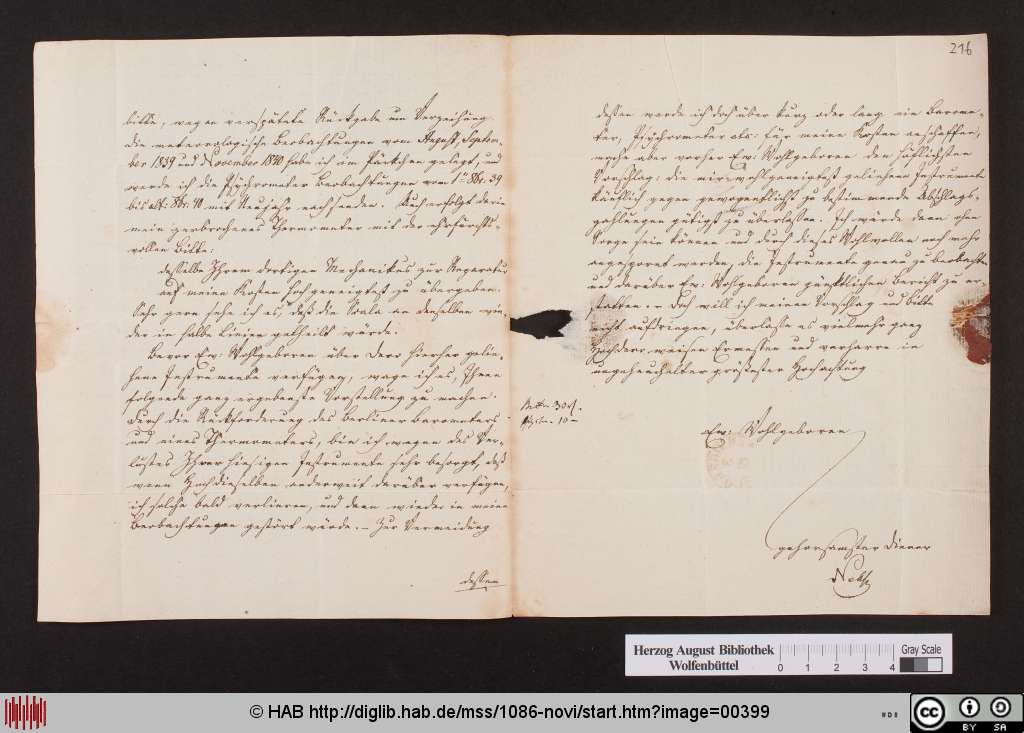 bitte, wegen verspätete Rückgabe um Verzeihung.
Die meteorologische Beobachtungen vom August, Septem-
ber 1839 und November 1840 habe ich im Päckchen gelegt, und
werde ich die Psychrometer Beobachtungen vom 1ten 8br. 39
bis ult: 8br. 40 mit Neujahr nachsenden. Auch erfolgt darin
mein zerbrochenes Thermometer mit der ehrfurchts-
vollen Bitte:
dasselbe Ihrem dortigen Mechanikus zur Reparatur
auf meine Kosten hochgeneigtest zu übergeben.
Sehr gern sehe ich es, daß die Scala an denselben wie-
der in halbe Linien getheilt würde.
Bevor Ew: Wohlgeboren über Dero hierher gelie-
hene Instrumente verfügen, wage ich es, Ihnen
folgende ganz ergebenste Vorstellung zu machen.
Durch die Rückforderung des Berliner Barometers
und eines Thermometers, bin ich wegen des Ver-
lustes Ihrer hiesigen Instrumente sehr besorgt, daß
wenn Hochdieselben anderweit darüber verfügen,
ich solche bald verlieren, und dann wieder in meine
Beobachtungen gestört würde. – Zur Vermeidung
dessen
216
dessen werde ich doch über kurz oder lang ein Barome-
ter, Psychrometer für meine Kosten anschaffen,
mache aber vorher Ew. Wohlgeboren den höflichsten
Vorschlag: die mir wohlgeneigtest geliehene Instrumente
käuflich gegen gewogentlichst zu bestimmende Abschlags-
zahlungen gütigst zu überlassen. Ich würde dann ohne
Sorge sein können und durch dieses Wohlwollen noch mehr
angespornt werden, die Instrumente genau zu beobachten
und darüber Ew. Wohlgeboren pünktlichen Bericht zu er-
statten. – Doch will ich meinen Vorschlag und bitte
nicht aufdringen, überlasse es vielmehr ganz
Hochdero weisen Ermessen und verharre in
ungeheuchelter größester Hochachtung
30
10 –
Ew: Wohlgeboren
gehorsamster Diener
Herzog August Bibliothek
Wolfenbüttel
0 1 2 3 4
Gray Scale
© HAB http://diglib.hab.de/mss/1086-novi/start.htm?image=00399
cc BY SA